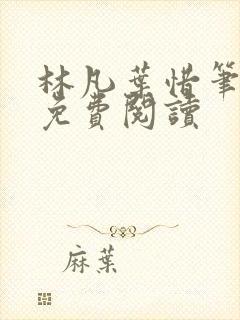 林凡葉惜筆
免費閱讀
麻葉